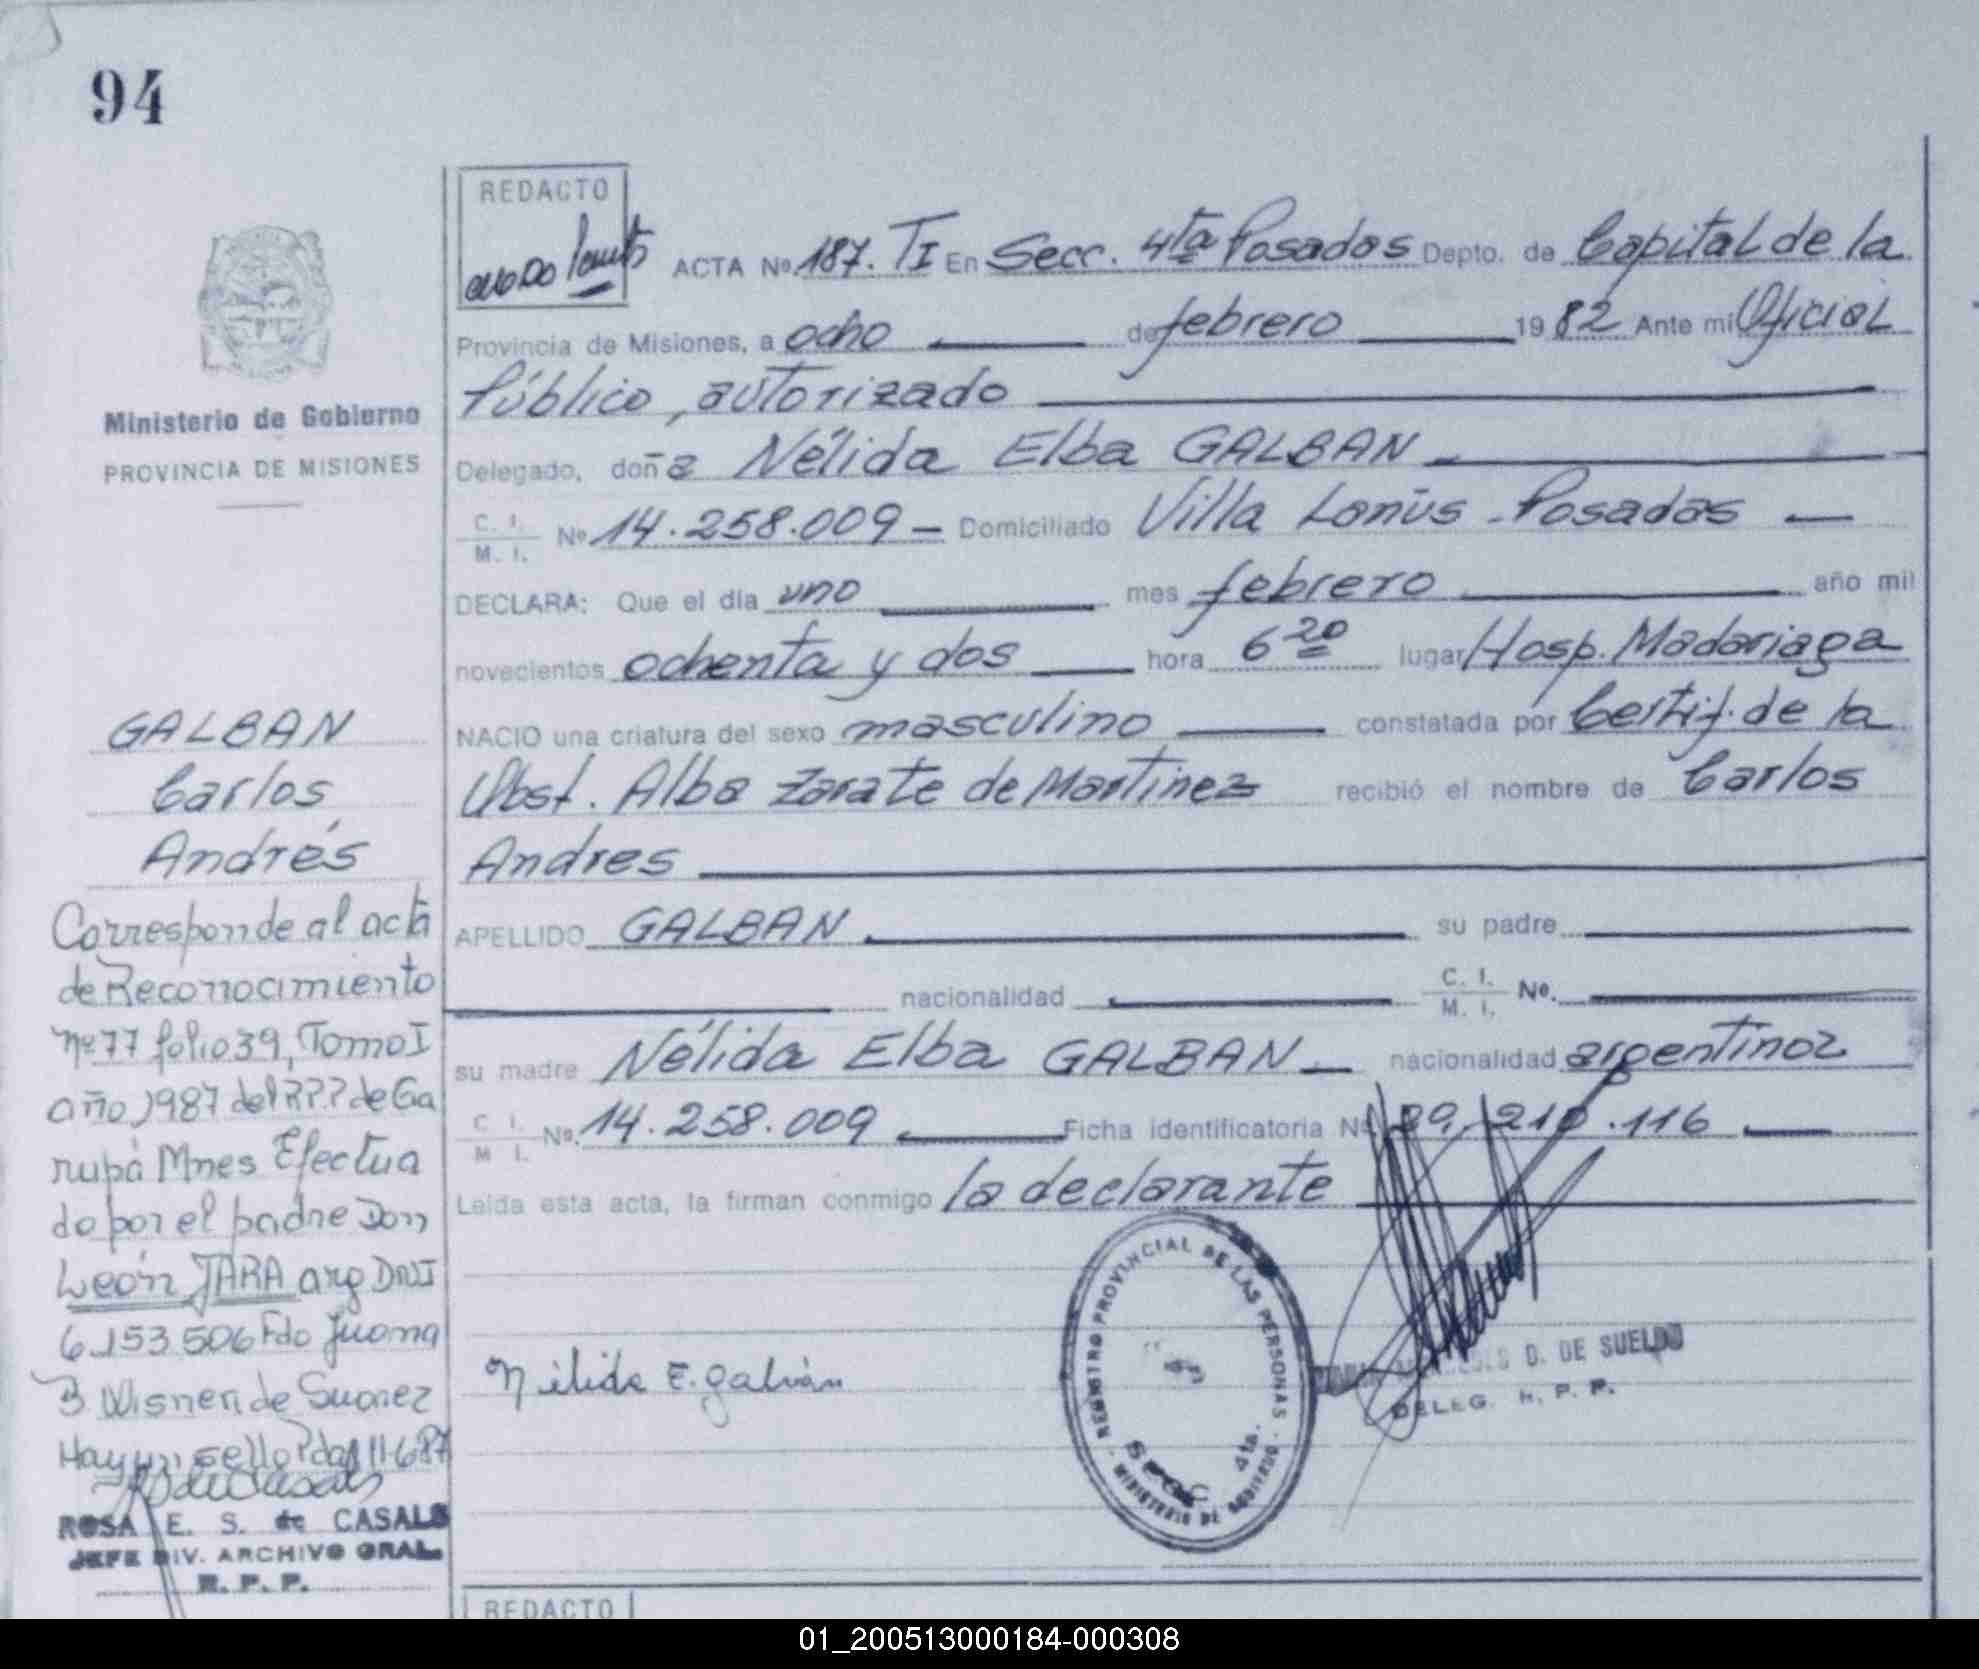 94
REDACTO
ACTA Nº 187. TI En Secc. 4ta Posadas Depto. de Capital de la
Provincia de Misiones, a ocho de febrero 1982 Ante mi Oficial
Público, autorizado
Ministerio de Gobierno
PROVINCIA DE MISIONES
Delegado, doña Nélida Elba GALBAN
C. I. M. I. Nº 14.258.009 - Domiciliado Villa Lanús - Posadas
DECLARA: Que el día uno mes febrero año mil
novecientos ochenta y dos hora 6 20 lugar Hosp. Madariaga
NACIO una criatura del sexo masculino constatada por Certif. de la
Obst. Alba Zarate de Martinez recibió el nombre de Carlos
Andres
APELLIDO GALBAN su padre
nacionalidad C. I. M. I. Nº.
su madre Nélida Elba GALBAN nacionalidad argentina
C. I. M. I. Nº. 14.258.009 Ficha identificatoria Nº 29.210.116
Leída esta acta, la firman conmigo la declarante
GALBAN
Carlos
Andrés
Corresponde al acta
de Reconocimiento
Nº 77 folio 39, Tomo I
año 1987 del RPP de Ga
rupá Mnes Efectua
do por el padre Don
León JARA arg DNI
6.153.506 Fdo Juana
B. Wisner de Suarez
Hay un sello Pdas 11-6-87
ROSA E. S. de CASALS
JEFE DIV. ARCHIVO GRAL.
R. P. P.
Nélida E. Galván
REGISTRO PROVINCIAL DE LAS PERSONAS - MINISTERIO DE GOBIERNO
SECC 4ta.
D. DE SUELDO
DELEG. R. P. P.
REDACTO
01_200513000184-000308